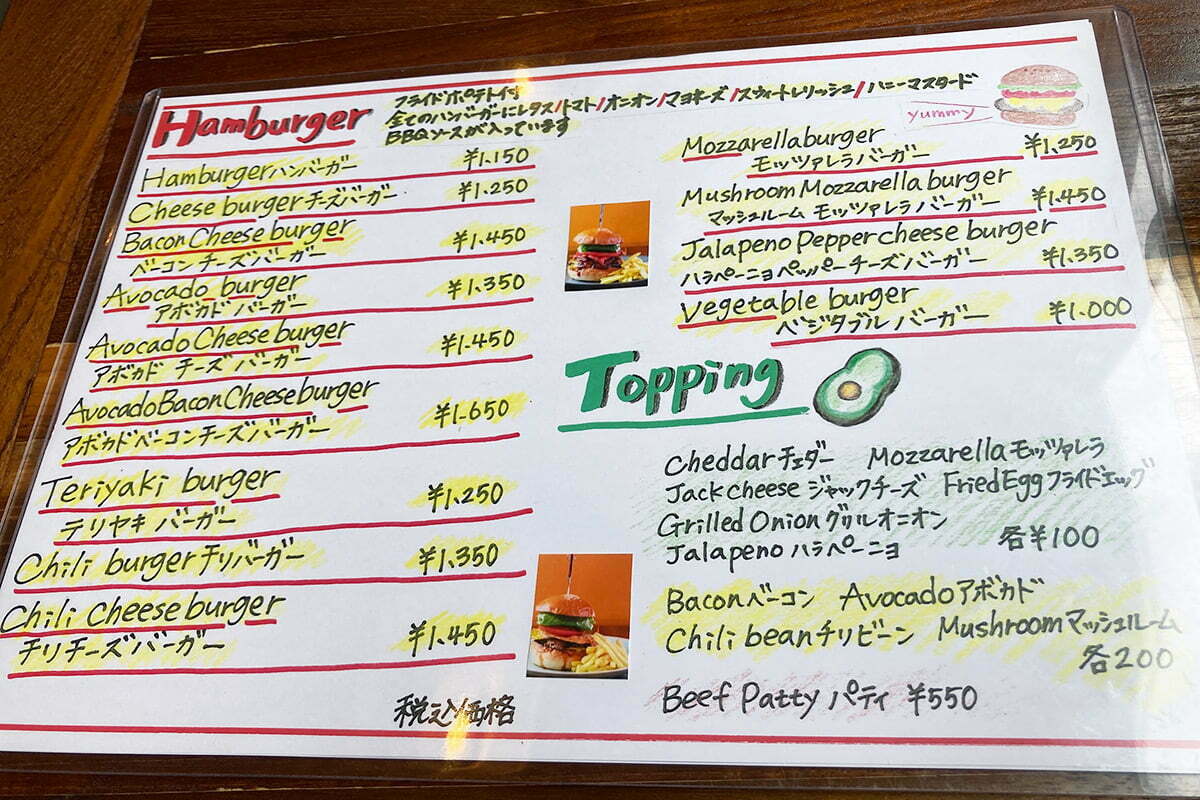 Hamburger
フライドポテト付
全てのハンバーガーにレタス/トマト/オニオン/マヨネーズ/スウィートレリッシュ/ハニーマスタード
BBQソースが入っています
yummy
Hamburgerハンバーガー ¥1.150
Cheese burgerチーズバーガー ¥1.250
Bacon Cheese burger
ベーコンチーズバーガー ¥1.450
Avocado burger
アボカドバーガー ¥1.350
Avocado Cheese burger
アボカド チーズバーガー ¥1.450
Avocado Bacon Cheese burger
アボカドベーコンチーズバーガー ¥1.650
Teriyaki burger
テリヤキバーガー ¥1.250
Chili burgerチリバーガー ¥1.350
Chili cheese burger
チリチーズバーガー ¥1.450
税込価格
Mozzarella burger
モッツァレラバーガー ¥1.250
Mushroom Mozzarella burger
マッシュルーム モッツァレラバーガー ¥1.450
Jalapeno Pepper cheese burger
ハラペーニョペッパーチーズバーガー ¥1.350
Vegetable burger
ベジタブルバーガー ¥1.000
Topping
Cheddarチェダー Mozzarellaモッツァレラ
Jack cheese ジャックチーズ Fried Eggフライドエッグ
Grilled Onionグリルオニオン
Jalapeno ハラペーニョ 各¥100
Baconベーコン Avocadoアボカド
Chili beanチリビーン Mushroomマッシュルーム
各200
Beef Patty パティ ¥550